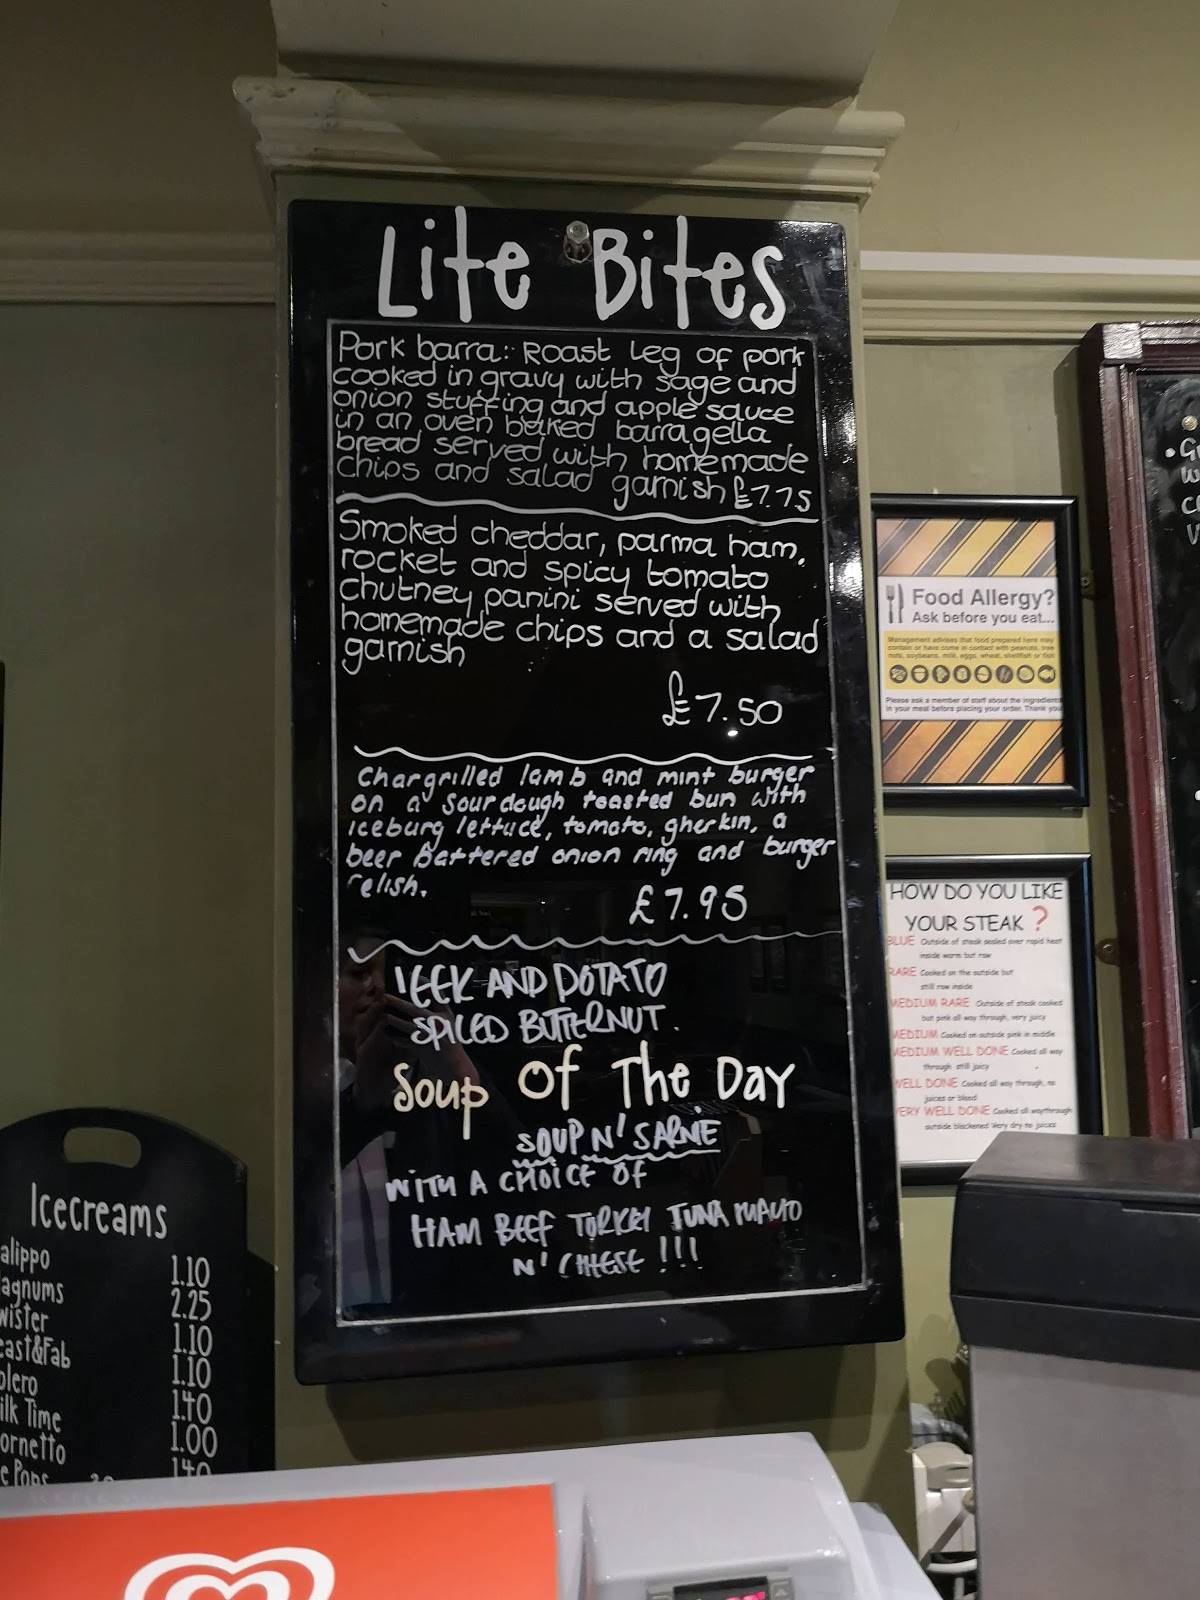 Lite Bites
Pork barra: Roast Leg of pork
cooked in gravy with sage and
onion stuffing and apple sauce
in an oven baked barragella
bread served with homemade
chips and salad garnish £7.75
Smoked cheddar, parma ham,
rocket and spicy tomato
chutney panini served with
homemade chips and a salad
garnish
£7.50
Chargrilled lamb and mint burger
on a sourdough toasted bun with
iceburg lettuce, tomato, gherkin, a
beer battered onion ring and burger
relish.
£7.95
LEEK AND POTATO
SPICED BUTTERNUT.
Soup Of The Day
SOUP N' SARNIE
WITH A CHOICE OF
HAM BEEF TURKEY TUNA MAYO
N' CHEESE !!!
Icecreams
alippo 1.10
agnums 2.25
wister 1.10
east&Fab 1.10
olero 1.40
ilk Time 1.00
ornetto 1.40
e Pops
Food Allergy?
Ask before you eat...
Management advises that food prepared here may
contain or have come in contact with peanuts, tree
nuts, soybeans, milk, eggs, wheat, shellfish or fish
Please ask a member of staff about the ingredients
in your meal before placing your order. Thank you
HOW DO YOU LIKE
YOUR STEAK ?
BLUE Outside of steak sealed over rapid heat
inside warm but raw
RARE Cooked on the outside but
still raw inside
MEDIUM RARE Outside of steak cooked
but pink all way through, very juicy
MEDIUM Cooked on outside pink in middle
MEDIUM WELL DONE Cooked all way
through still juicy
WELL DONE Cooked all way through, no
juices or blood
VERY WELL DONE Cooked all waythrough
outside blackened Very dry no juices